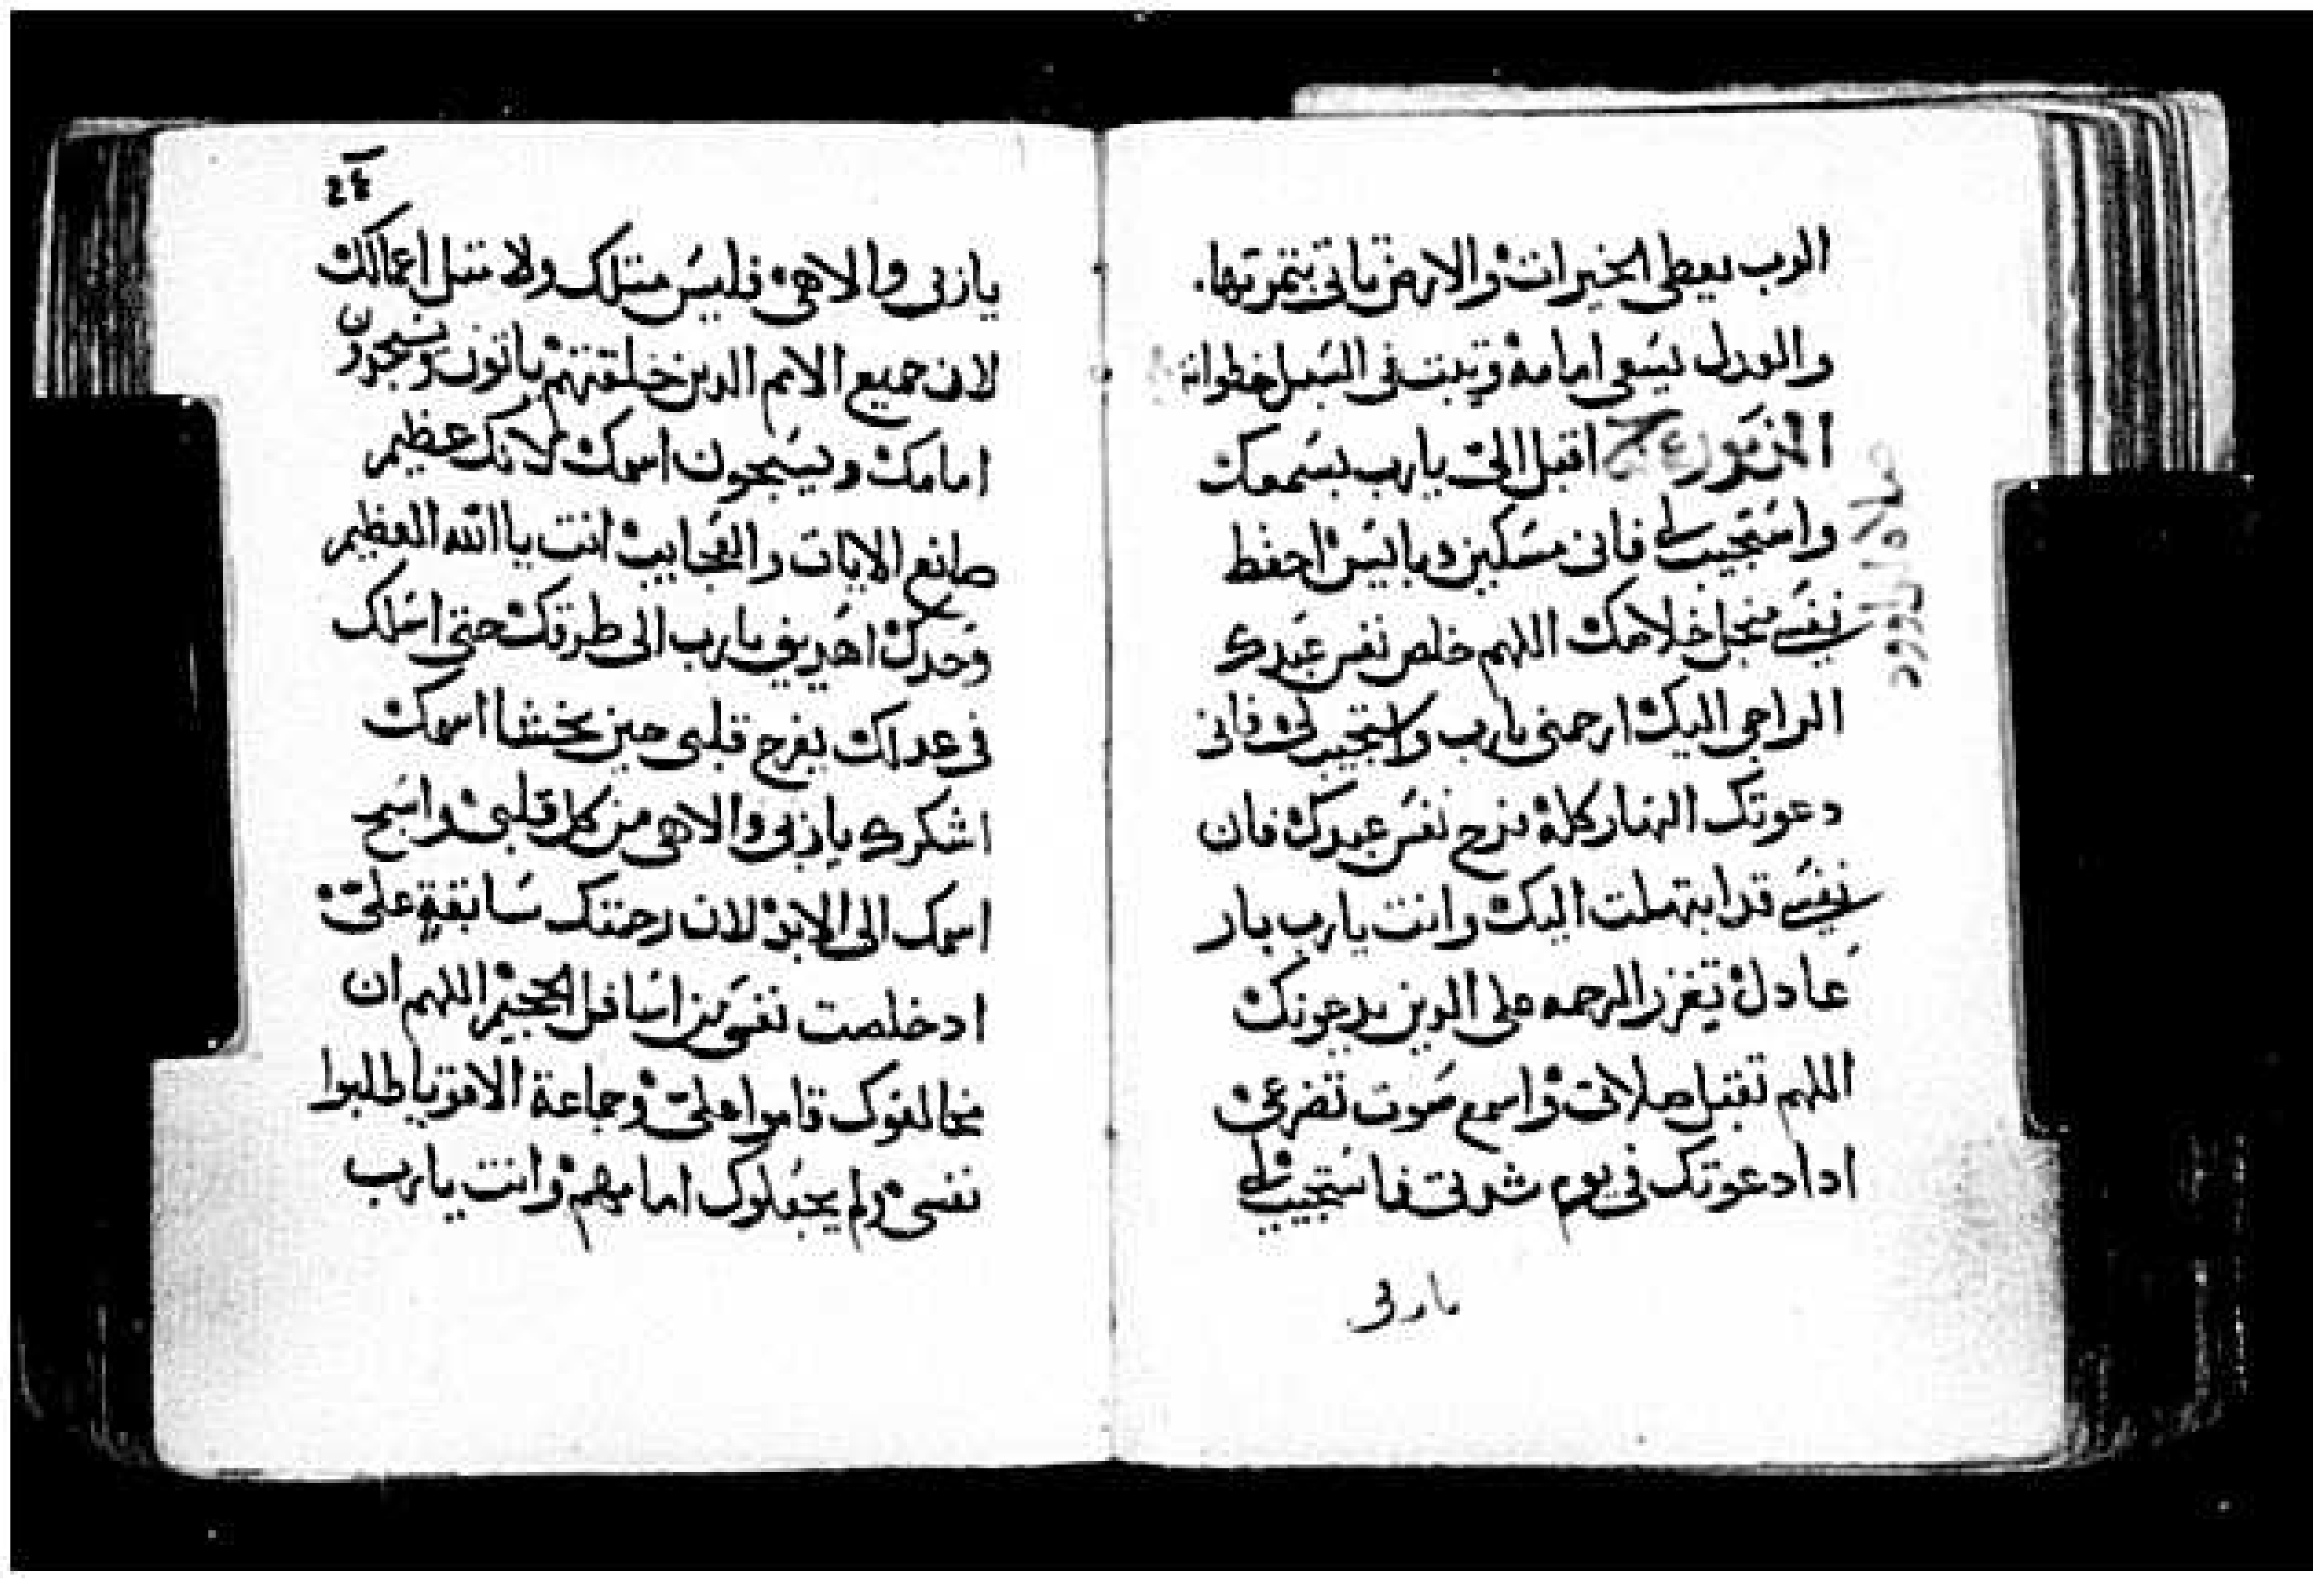 الرب يعطي الخيرات والارض تاتي بثمرتها.
والعدل يسعى امامه وتبت في السبل خطواته
المزمور اقبل الي يارب بسمعك
واستجيب لي فاني مسكين وبايس احفظ
نفسي منجل خلاصك اللهم خلص نفس عبدك
الراجي اليك ارحمني يارب واستجيب لي فاني
دعوتك النهار كله فرح نفس عبدك فان
نفسي قد ابتهلت اليك وانت يارب بار
عادل تغزر الرحمه على الدين يدعونك
اللهم تقبل صلاتي واسمع صوت تضرعي
ادا دعوتك في يوم شدتي فاستجيب لي
ياربي
صلاة لداوود
ياربي والاهي فليس متلك ولا متل اعمالك
لان جميع الامم الدين خلقتهم ياتون ويسجدون
امامك ويسبحون اسمك لانك عظيم
صانع الايات والعجايب انت يا الله العظيم
وحدك اهديني يارب الى طرقك حتى اسلك
في عدلك يفرح قلبي حين يخشا اسمك
اشكرك ياربي والاهي من كل قلبي واسبح
اسمك الى الابد لان رحمتك سابقة علي
اد خلصت نفسي من اسافل الجحيم اللهم ان
مخالفوك قاموا علي وجماعة الاقويا طلبوا
نفسي ولم يجعلوك امامهم وانت يارب